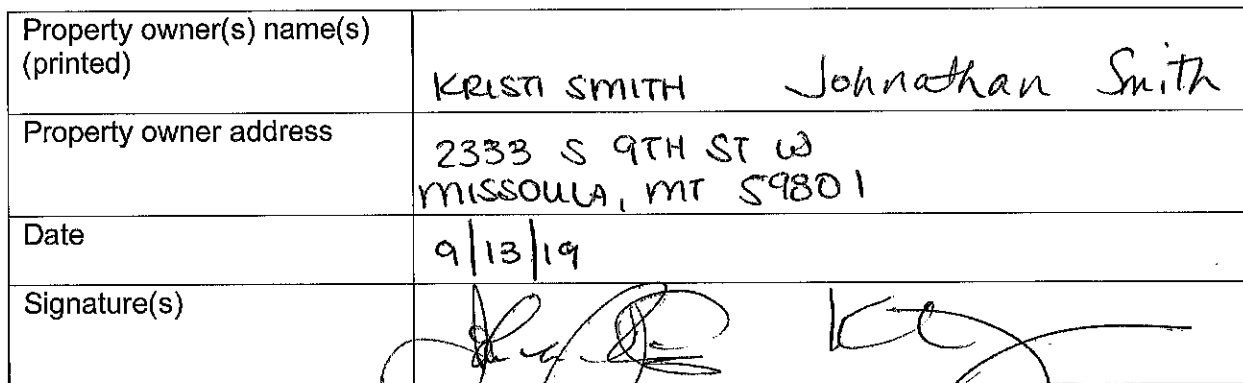 Property owner(s) name(s)
(printed)
KRISTI SMITH Johnathan Smith
Property owner address
2333 S 9TH ST W
MISSOULA, MT 59801
Date
9/13/19
Signature(s)